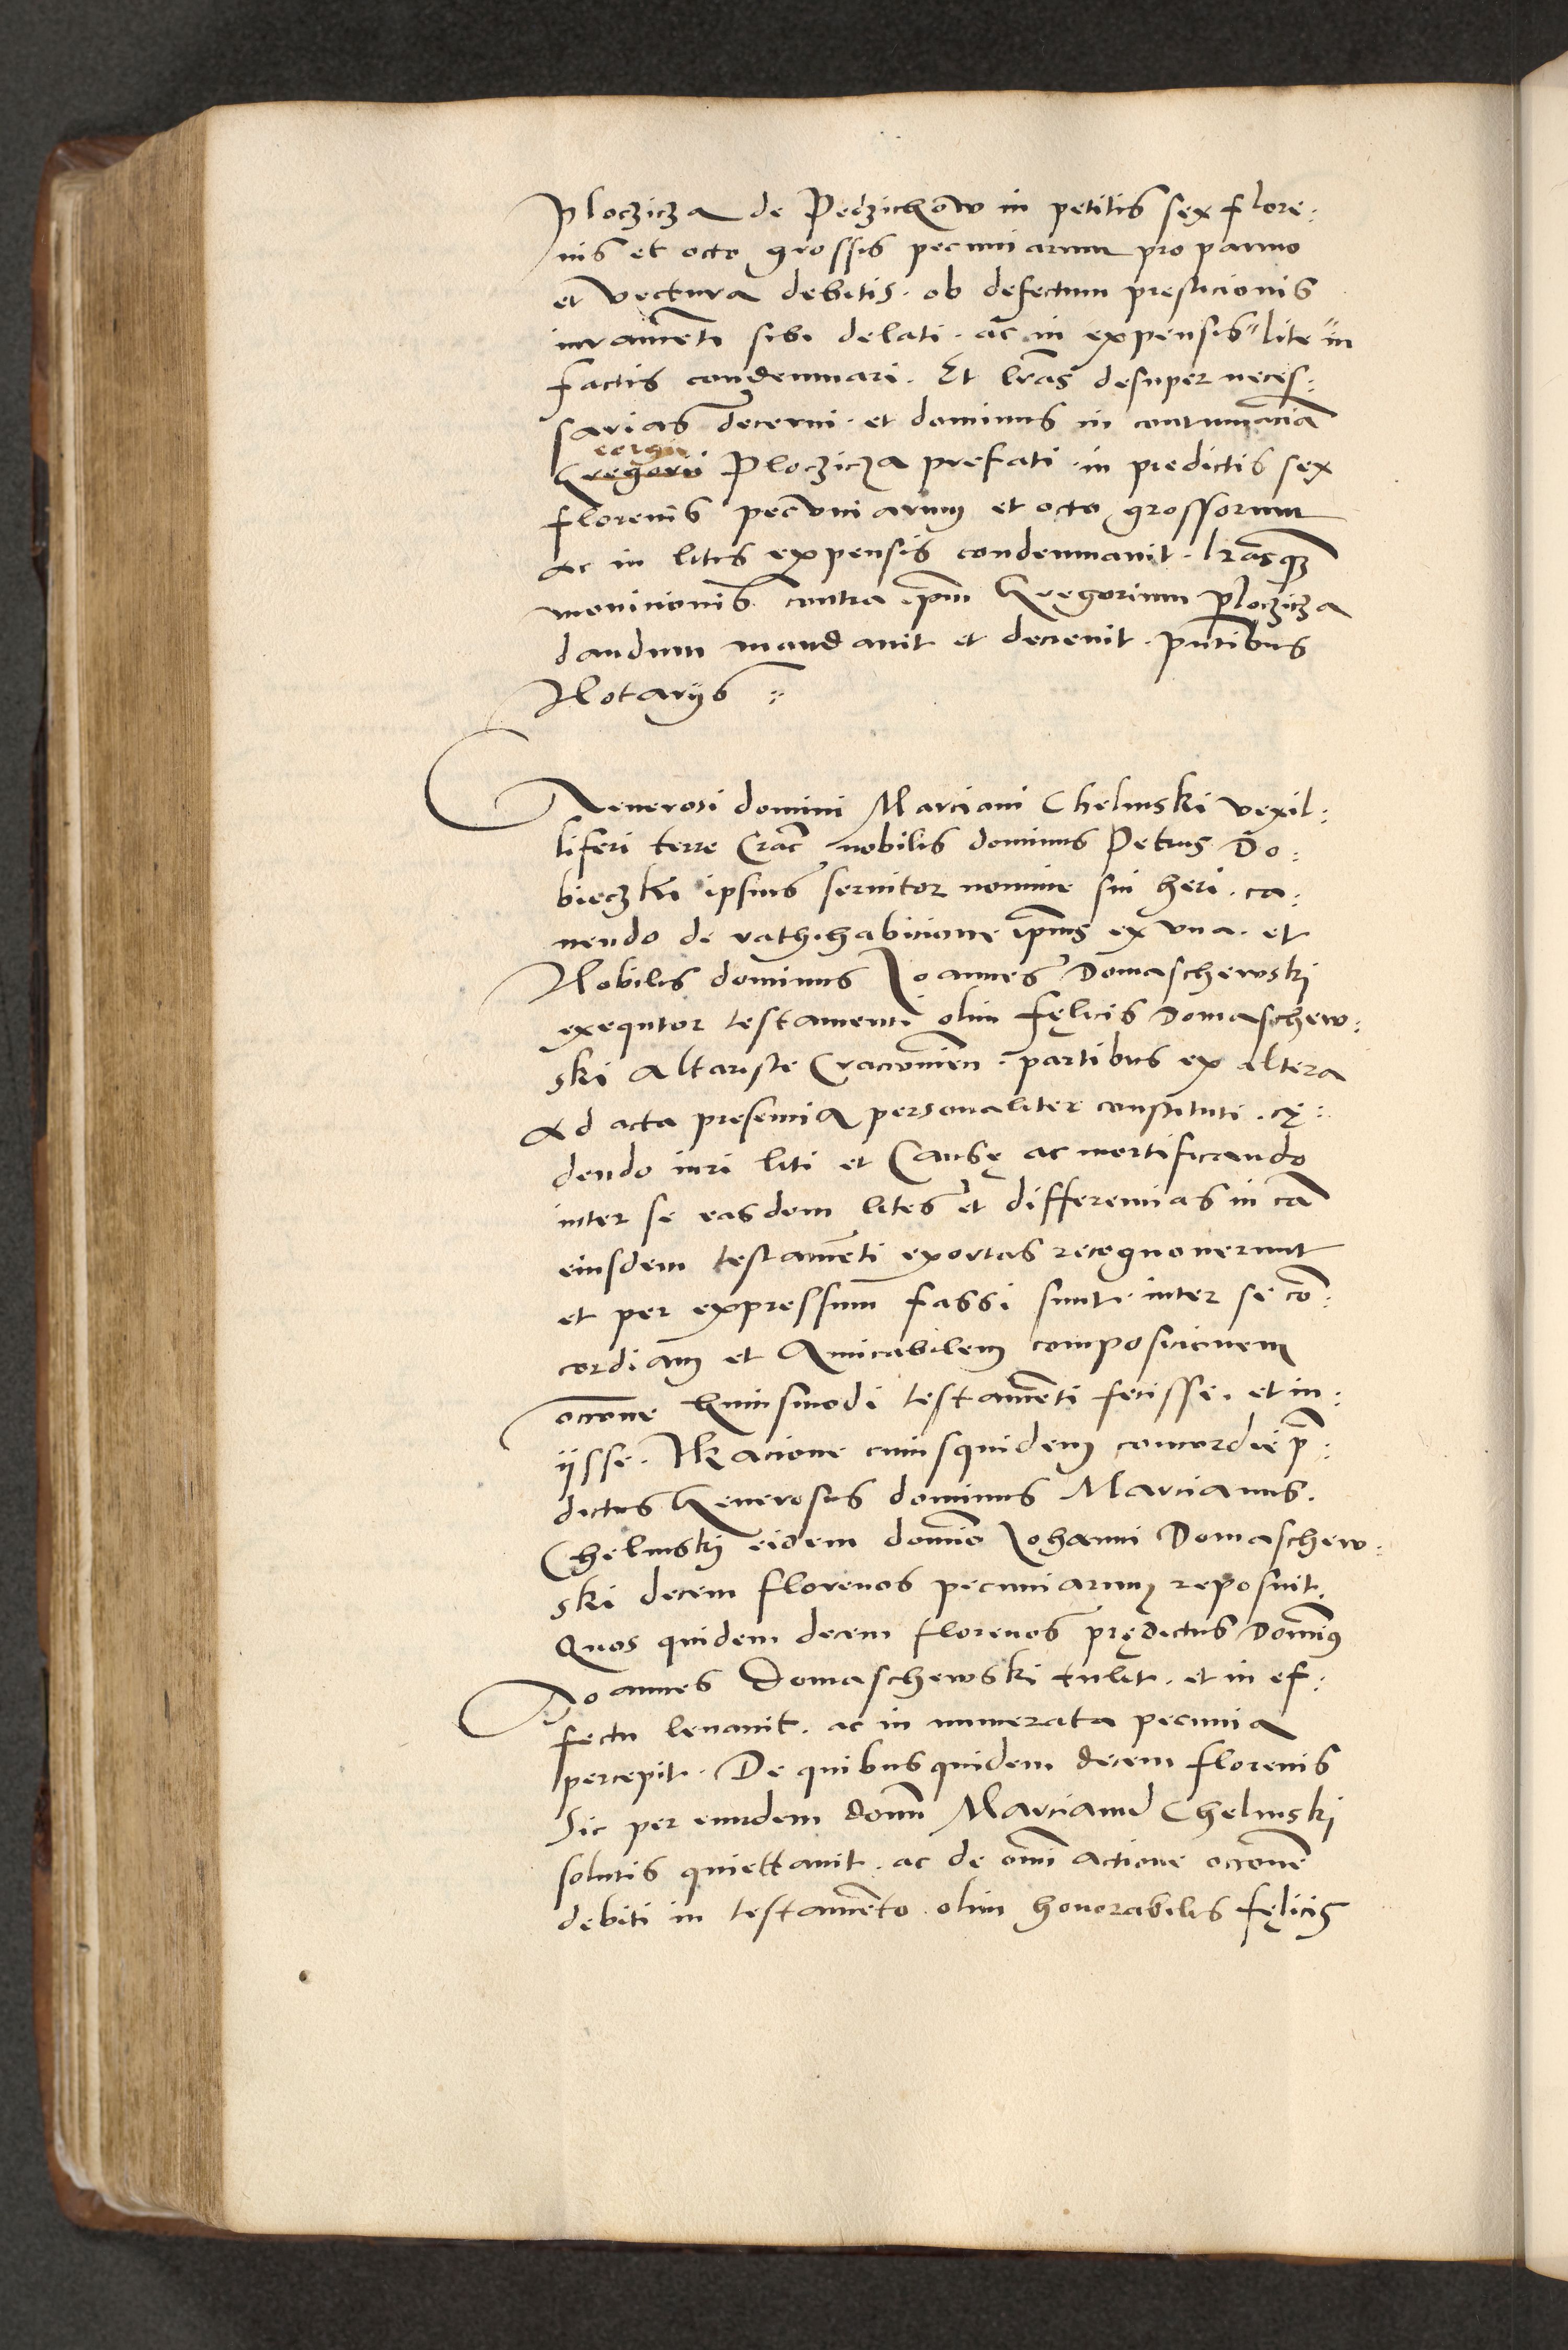 Ploczicza de Pedzichow in petitis sex flore:
nis et octo grossis pecuniarum pro panno
et vectura debitis. ob defectum prestacionis
iuramēti sibi delati. ac in expensis" lite "in
factis condemnari. Et lr̄as desuper neces:
sarias decerni. et dominus in contumaciā
eorgii
Gregorii Ploczicza prefati. in predictis sex
florenis pecuniarum et octo grossorum
ac in litis expensis condemnavit. lr̄asqȝ
monicionis contra ip̄m Gregorium Ploczicza
dandum mandavit et decrevit. pn̄tibus
Notarijs :

Generosi domini Marciani Chelmski vexil:
liferi terre Crac̄ nobilis dominus Petrus Do:
bieczki ipsius servitor nomine sui heri. ca:
vendo de rathihabicione ip̄ius ex una. et
Nobilis dominus Joannes Domaschewski
exequtor testamenti olim Fęlicis Domaschew:
ski Altariste Cracovien̄. partibus ex altera
ad acta presencia personaliter constituti. cę:
dendo iuri liti et Causę ac mortificando
inter se easdem lites et differencias in cā
eiusdem testamēti exortas recognoverunt
et per expressum fassi sunt. inter se cō:
cordiam et Amicabilem composicionem
occ̄one huiusmodi testamēti fecisse. et in:
ijsse. Racione cuiusquidem concordie p̄:
dictus Generosus dominus Marcianus.
Chelmskj eidem domīo Johanni Domaschew:
ski decem florenos pecuniarum reposuit.
Quos quidem decem florenos prędictus Domīus
Joannes Domaschewski tulit. et in ef:
fectu levavit. ac in numerata pecunia
percepit. De quibusquidem decem florenis
sic per eundem domn̄ Marcianū Chelmskj
solutis quiettavit. ac de om̄i actione occ̄one
debiti in testamēto olim honorabilis Fęlicis